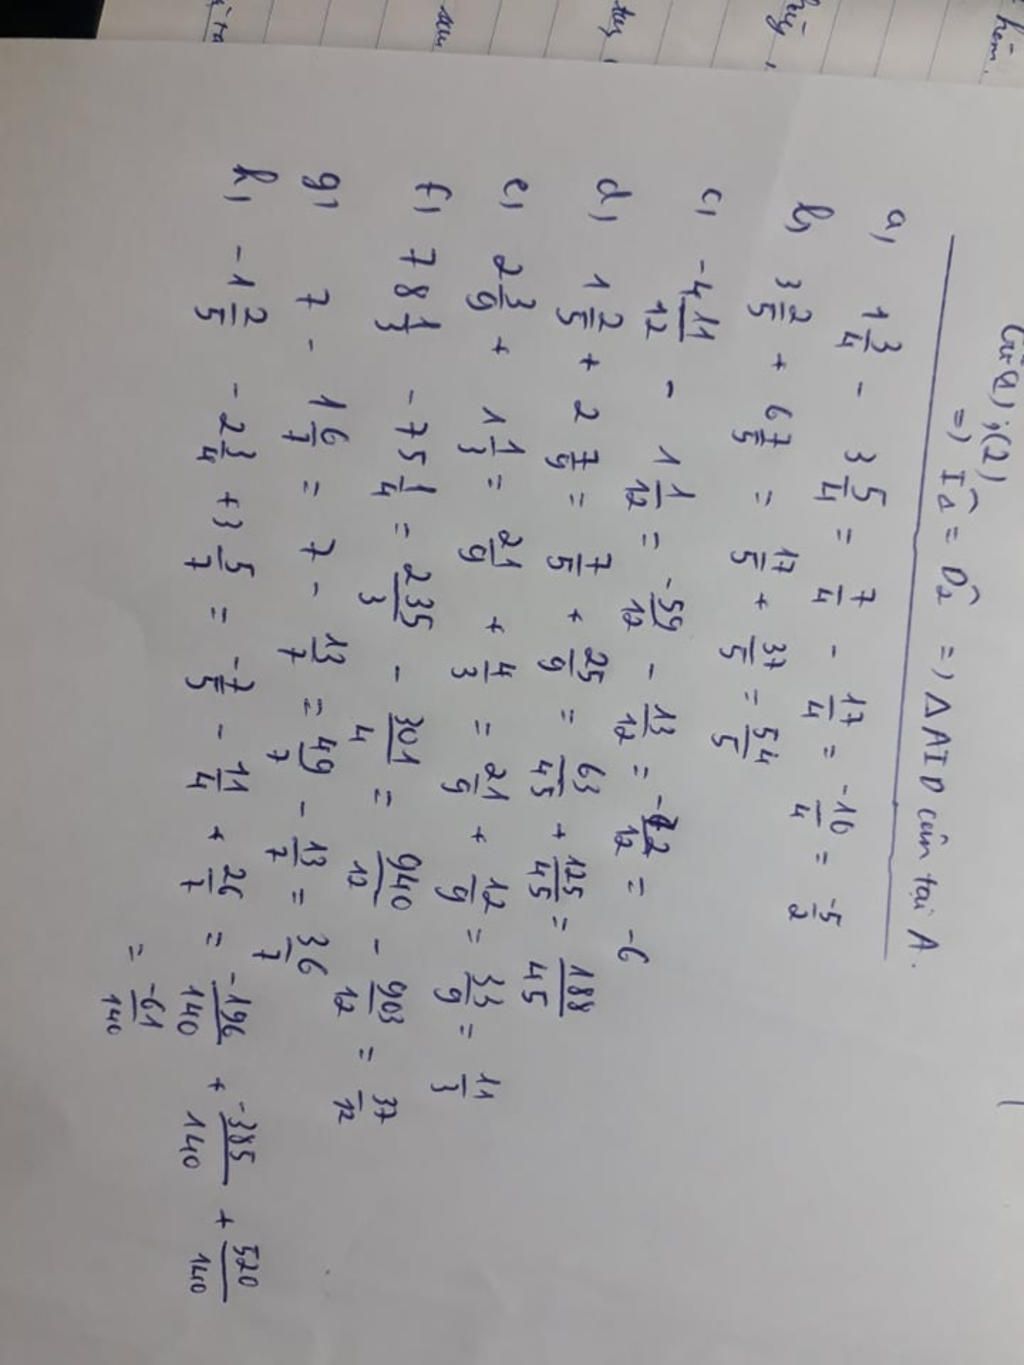 Từ (1); (2)
=) Î₂ = D̂₂ =) ∆ AID cân tại A.
a, 1 3/4 - 3 5/4 = 7/4 - 17/4 = -10/4 = -5/2
b, 3 2/5 + 6 7/5 = 17/5 + 37/5 = 54/5
c, -4 11/12 - 1 1/12 = -59/12 - 13/12 = -72/12 = -6
d, 1 2/5 + 2 7/9 = 7/5 + 25/9 = 63/45 + 125/45 = 188/45
e, 2 3/9 + 1 1/3 = 21/9 + 4/3 = 21/9 + 12/9 = 33/9 = 11/3
f, 78 1/3 - 75 1/4 = 235/3 - 301/4 = 940/12 - 903/12 = 37/12
g, 7 - 1 6/7 = 7 - 13/7 = 49/7 - 13/7 = 36/7
h, -1 2/5 - 2 3/4 + 3 5/7 = -7/5 - 11/4 + 26/7 = -196/140 + -385/140 + 520/140
= -61/140